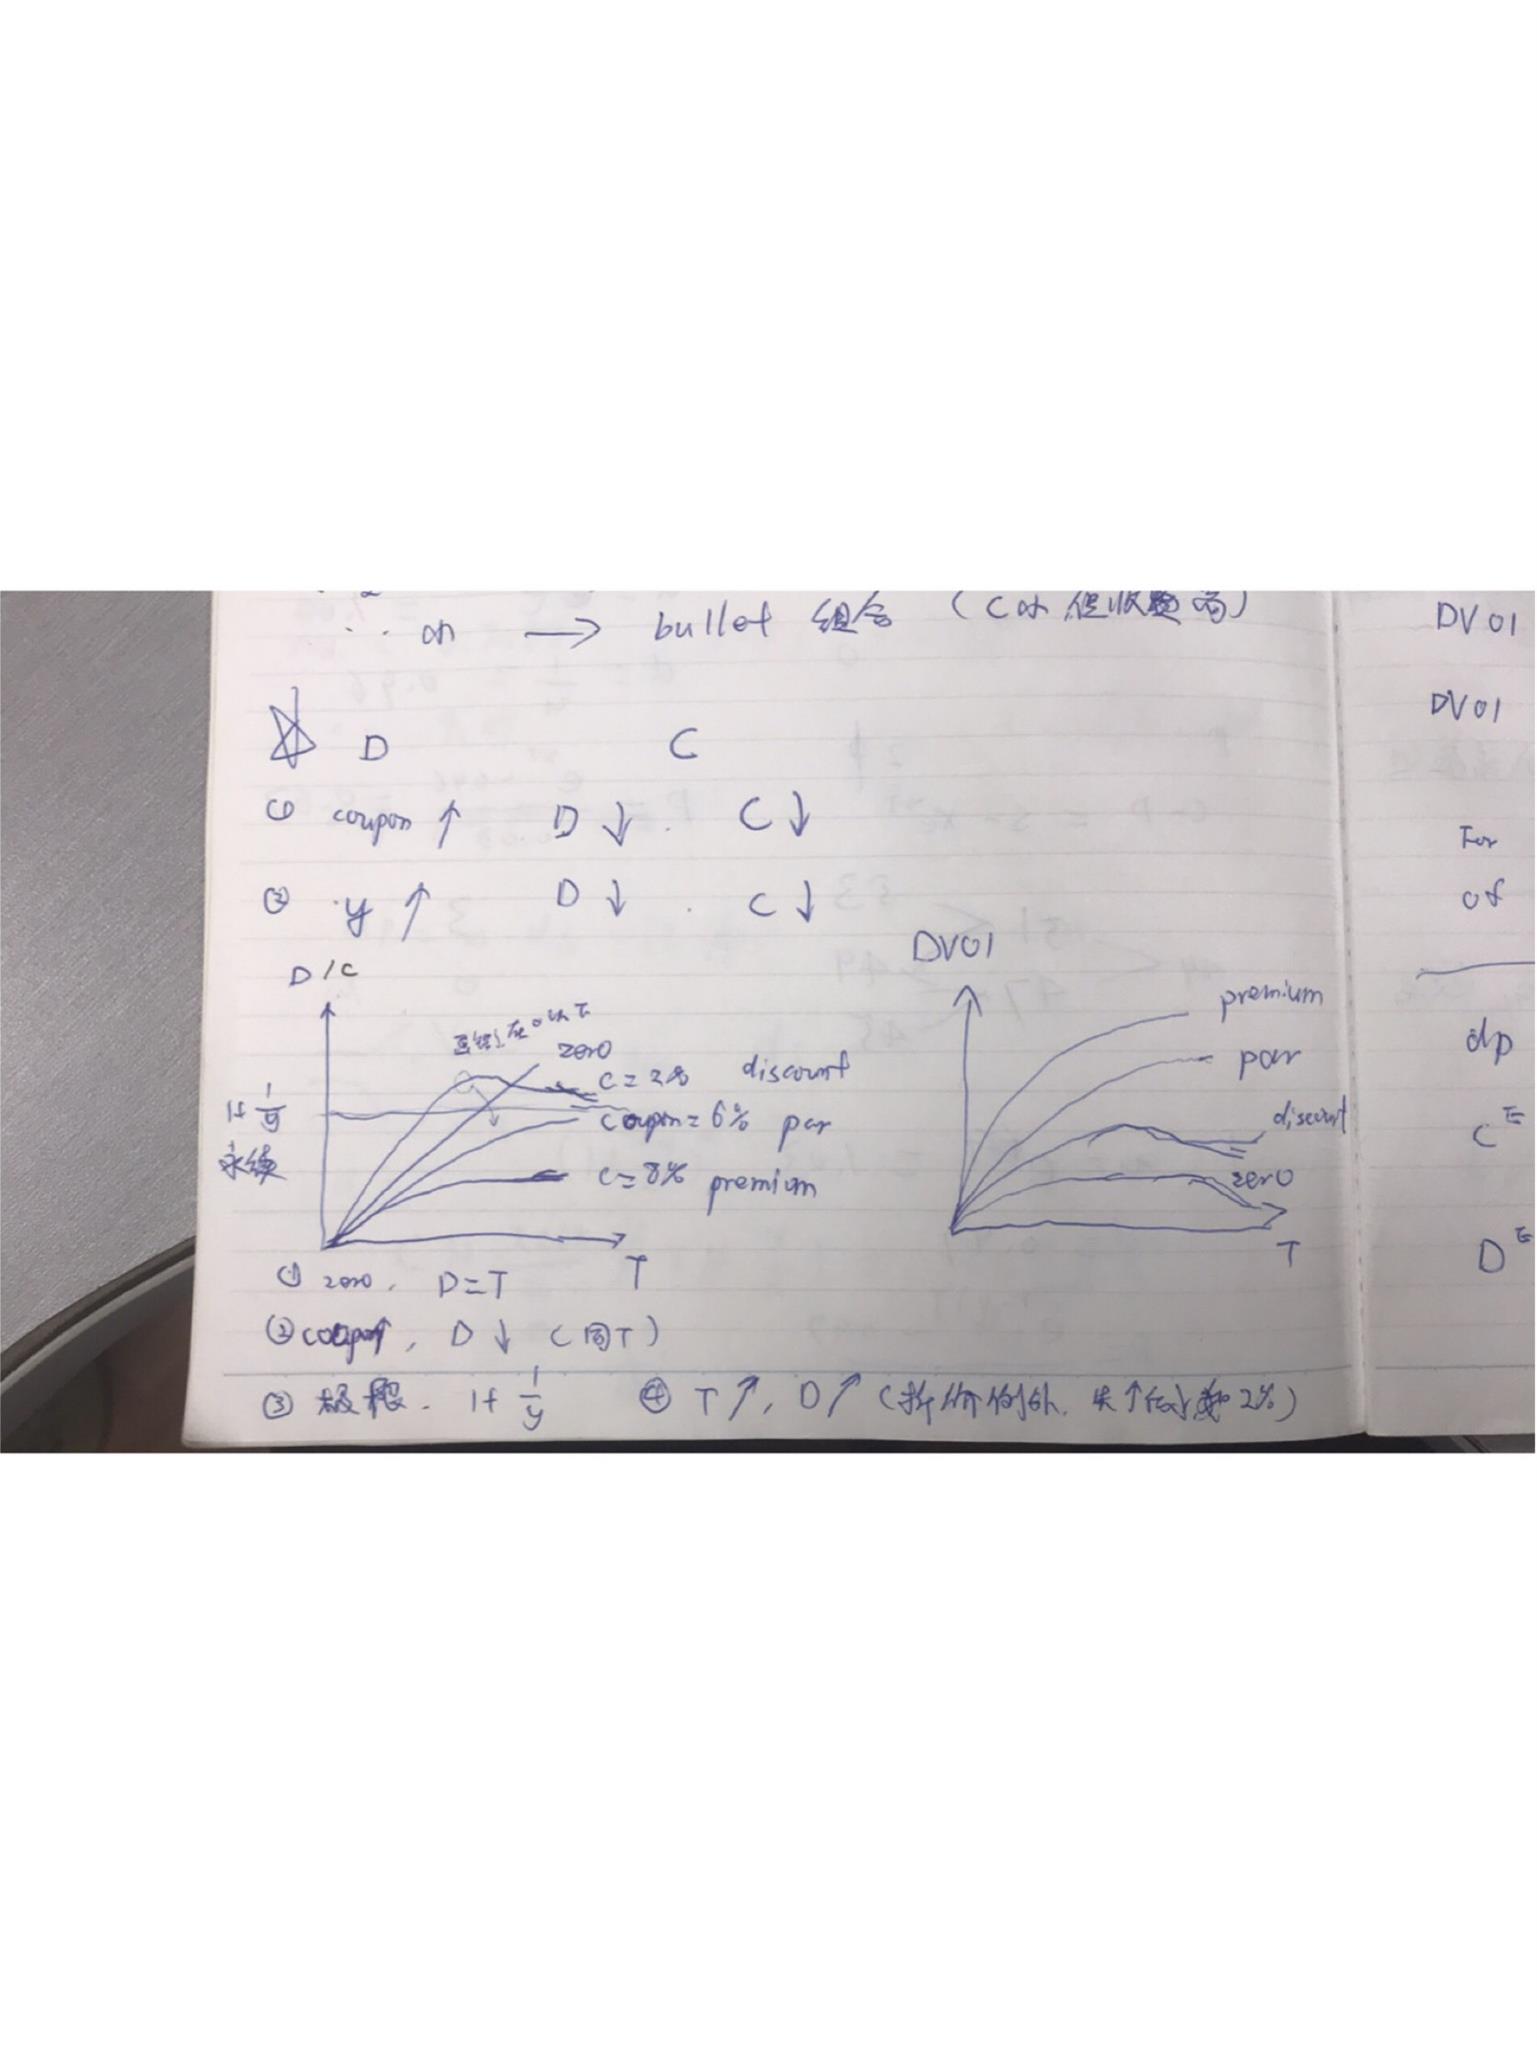 on → bullet 组合 (C小 但收益高)
D C
① coupon ↑ D ↓ . C ↓
② y ↑ D ↓ . C ↓
D/C
zero
C=2% discount
1+ 1/y
永续
coupon=6% par
C=8% premium
T
DV01
premium
par
discount
zero
T
① zero. D=T
② coupon↑, D ↓ (同T)
③ 极限. 1+ 1/y ④ T↑, D↑ (折价例外, 先↑ 2%)
DV01
DV01
For
of
dp
C
D